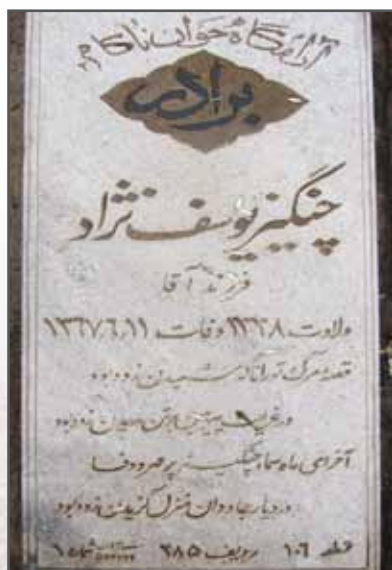 آرامگاه جوان ناکام
برادر
چنگیز یوسف نژاد
فرزند آقا
ولادت ۱۳۳۸ وفات ۱۳۶۷٫۶٫۱۱
قصه مرگ تو را شنیدن زود بود
زود بود
آخر ای ماه سما چنگیز پر مهر و وفا
در دیار جاودان منزل گزیدن زود بود
قطعه ۱۰۶ ردیف ۲۸۵ شماره ۱